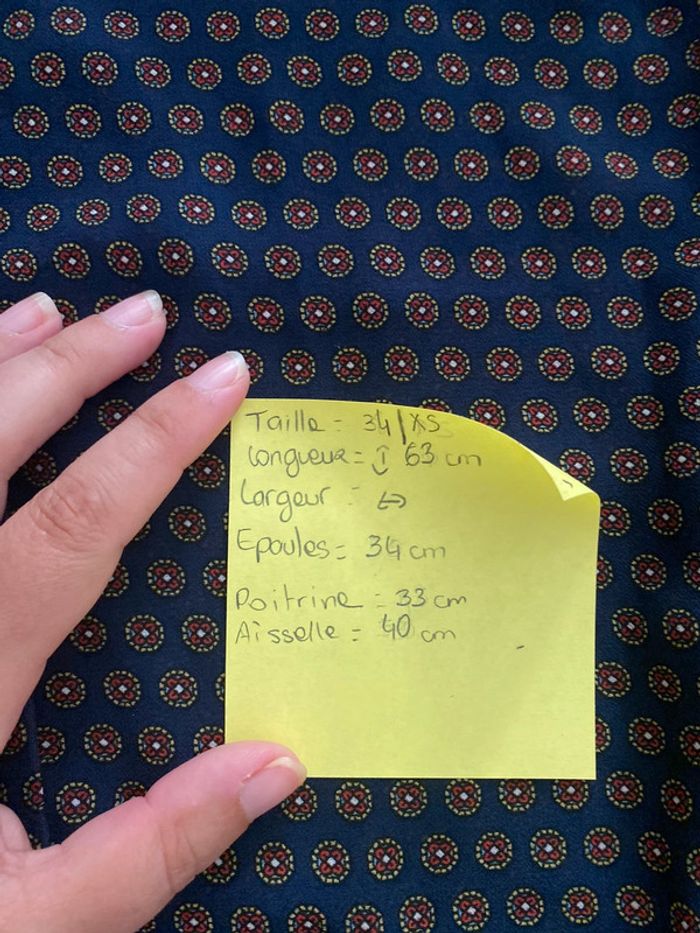 Taille = 34/XS
Longueur = ↕ 63 cm
Largeur = ↔
Epaules = 34 cm
Poitrine = 33 cm
Aisselle = 40 cm